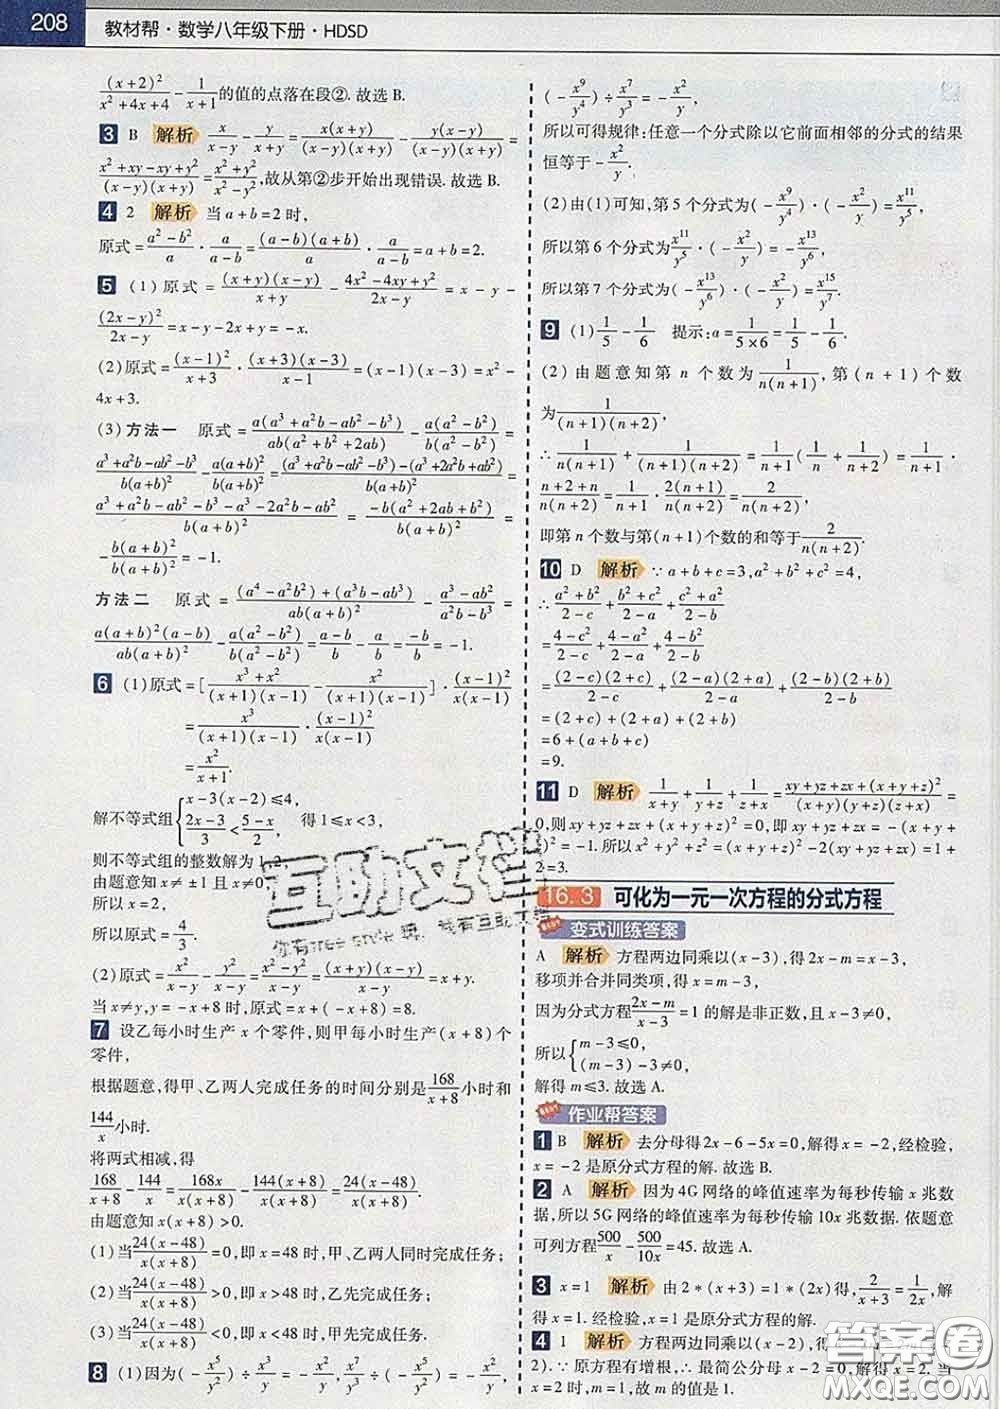 208 教材帮·数学八年级下册·HDSD
(x+2)²/(x²+4x+4) - 1/(x+1)的值的点落在段②. 故选 B.
3 B 解析 x/(x-y) - y/(x+y) = x(x+y)/((x-y)(x+y)) - y(x-y)/((x-y)(x+y)) =
(x²+xy-xy+y²)/((x-y)(x+y)) = (x²+y²)/(x²-y²), 故从第②步开始出现错误. 故选 B.
4 2 解析 当 a+b=2 时,
原式 = (a²-b²)/a · a/(a-b) = (a-b)(a+b)/a · a/(a-b) = a+b = 2.
5 (1) 原式 = (x+y)(x-y)/(x+y) - (4x²-4xy+y²)/(2x-y) = x-y-
(2x-y)²/(2x-y) = x-y-2x+y = -x.
(2) 原式 = (x-1)²/(x+3) · (x+3)(x-3)/(x-1) = (x-1)(x-3) = x²-
4x+3.
(3) 方法一 原式 = a(a³+a²b-ab²-b³)/(ab(a²+b²+2ab)) - a(a²-b²)/(b(a²-b²)) =
(a³+a²b-ab²-b³)/(b(a+b)²) - a(a+b)²/(b(a+b)²) = ((a³+a²b-ab²-b³)-(a³+2a²b+ab²))/(b(a+b)²) =
(a³+a²b-ab²-b³-a³-2a²b-ab²)/(b(a+b)²) = -b(a²+2ab+b²)/(b(a+b)²) =
-b(a+b)²/(b(a+b)²) = -1.
方法二 原式 = ((a⁴-a²b²)+(a³b-ab³))/(ab(a+b)²) - (a³-ab²)/(a²b-b³) =
a(a+b)²(a-b)/(ab(a+b)²) - a(a²-b²)/(b(a²-b²)) = (a-b)/b - a/b = -b/b = -1.
6 (1) 原式 = [(x³+x²)/((x+1)(x-1)) - x²/((x+1)(x-1))] · (x-1)²/(x(x-1))
= x³/((x+1)(x-1)) · (x-1)²/(x(x-1))
= x²/(x+1).
解不等式组{x-3(x-2)≤4, (2x-3)/3<(5-x)/2, 得 1≤x<3,
则不等式组的整数解为 1,2,
由题意知 x≠±1 且 x≠0,
所以 x=2,
所以原式 = 4/3.
(2) 原式 = x²/(x-y) - y²/(x-y) = (x²-y²)/(x-y) = (x+y)(x-y)/(x-y) = x+y.
当 x≠y, y=-x+8 时, 原式 = x+(-x+8) = 8.
7 设乙每小时生产 x 个零件, 则甲每小时生产(x+8)个
零件,
根据题意, 得甲、乙两人完成任务的时间分别是168/(x+8)小时和
144/x小时.
将两式相减, 得
168/(x+8) - 144/x = 168x/(x(x+8)) - 144(x+8)/(x(x+8)) = 24(x-48)/(x(x+8)).
由题意知 x(x+8)>0.
(1) 当24(x-48)/(x(x+8))=0, 即 x=48 时, 甲、乙两人同时完成任务;
(2) 当24(x-48)/(x(x+8))>0, 即 x>48 时, 乙先完成任务;
(3) 当24(x-48)/(x(x+8))<0, 即 x<48 时, 甲先完成任务.
8 (1) 因为(-x⁵/y²)÷x³/y = -x²/y, x⁷/y³÷(-x⁵/y²) = -x²/y,
(-x⁹/y⁴)÷x⁷/y³ = -x²/y,
所以可得规律:任意一个分式除以它前面相邻的分式的结果
恒等于 -x²/y.
(2) 由(1)可知, 第 5 个分式为(-x⁹/y⁴)·(-x²/y) = x¹¹/y⁵,
所以第 6 个分式为x¹¹/y⁵·(-x²/y) = -x¹³/y⁶,
所以第 7 个分式为(-x¹³/y⁶)·(-x²/y) = x¹⁵/y⁷.
9 (1) 1/5 - 1/6 提示: a = 1/(5×6) = 1/5 - 1/6.
(2) 由题意知第 n 个数为1/(n(n+1)), 第(n+1)个数
为1/((n+1)(n+2)),
∴ 1/(n(n+1)) + 1/((n+1)(n+2)) = 1/(n+1)(1/n + 1/(n+2)) = 1/(n+1)·
(n+2+n)/(n(n+2)) = 1/(n+1)·2(n+1)/(n(n+2)) = 2/(n(n+2)),
即第 n 个数与第(n+1)个数的和等于2/(n(n+2)).
10 D 解析 ∵ a+b+c=3, a²+b²+c²=4,
∴ (a²+b²)/(2-c) + (b²+c²)/(2-a) + (c²+a²)/(2-b)
= (4-c²)/(2-c) + (4-a²)/(2-a) + (4-b²)/(2-b)
= (2-c)(2+c)/(2-c) + (2-a)(2+a)/(2-a) + (2-b)(2+b)/(2-b)
= (2+c)+(2+a)+(2+b)
= 6+(a+b+c)
= 9.
11 D 解析 1/(x+y) + 1/(y+z) + 1/(z+x) = (xy+yz+zx+(x+y+z)²)/((x+y)(y+z)(z+x)) =
0, 则 xy+yz+zx+(x+y+z)²=0, 即 xy+yz+zx=-(x+y+
z)²=-1. 所以 x²+y²+z²=(x+y+z)²-2(xy+yz+zx)=1+
2=3.
16.3 可化为一元一次方程的分式方程
变式训练答案
A 解析 方程两边同乘以(x-3), 得 2x-m=x-3,
移项并合并同类项, 得 x=m-3,
因为分式方程(2x-m)/(x-3)=1 的解是非正数, 且 x-3≠0,
所以{m-3≤0, (m-3)-3≠0,
解得 m≤3. 故选 A.
作业帮答案
1 B 解析 去分母得 2x-6-5x=0, 解得 x=-2, 经检验,
x=-2 是原分式方程的解. 故选 B.
2 A 解析 因为 4G 网络的峰值速率为每秒传输 x 兆数
据, 所以 5G 网络的峰值速率为每秒传输 10x 兆数据. 依题意
可列方程500/x - 500/10x = 45. 故选 A.
3 x=1 解析 由 2*(x+3)=1*(2x)得, 2/(x+3)=1/2x, 解
得 x=1. 经检验, x=1 是原分式方程的解.
4 1 解析 方程两边同乘以(x-2), 得
2). ∵ 原方程有增根, ∴ 最简公分母 x-2=0, 解得 x=2. 当
x=2 时, m=1, 故 m 的值是 1.
互助文档
你有free style 嘿, 我有互助文档
答案圈
MXQE.COM